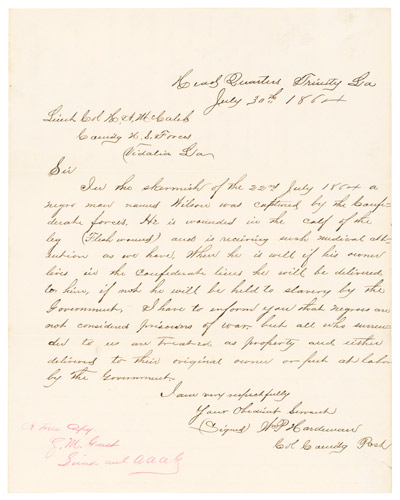 Head Quarters Trinity La
July 30th 1864
Lieut Col H A McCaleb
Comdg U. S. Forces
Vidalia La
Sir
In the skirmish of the 22nd July 1864 a
negro man named Wilson was captured by the Confe-
derate forces. He is wounded in the calf of the
leg (Flesh wound) and is reciving such medical at-
tention as we have, When he is well if his owner
lives in the Confederate lines he will be delivered
to him, if not he will be held to slavery by the
Government, I have to inform you that negroes are
not considered prisoners of war. but all who surren-
der to us are treated as property and either
delivered to their original owner or put at labor
by the Government.
I am very respectfully
Your Obedient Servant
(Signed) W P Hardeman
Col Comndg Post
A true Copy
Lieut and AAAG